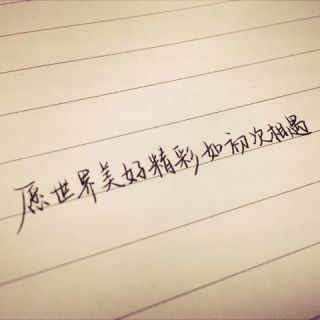 愿世界美好精彩如初次相遇